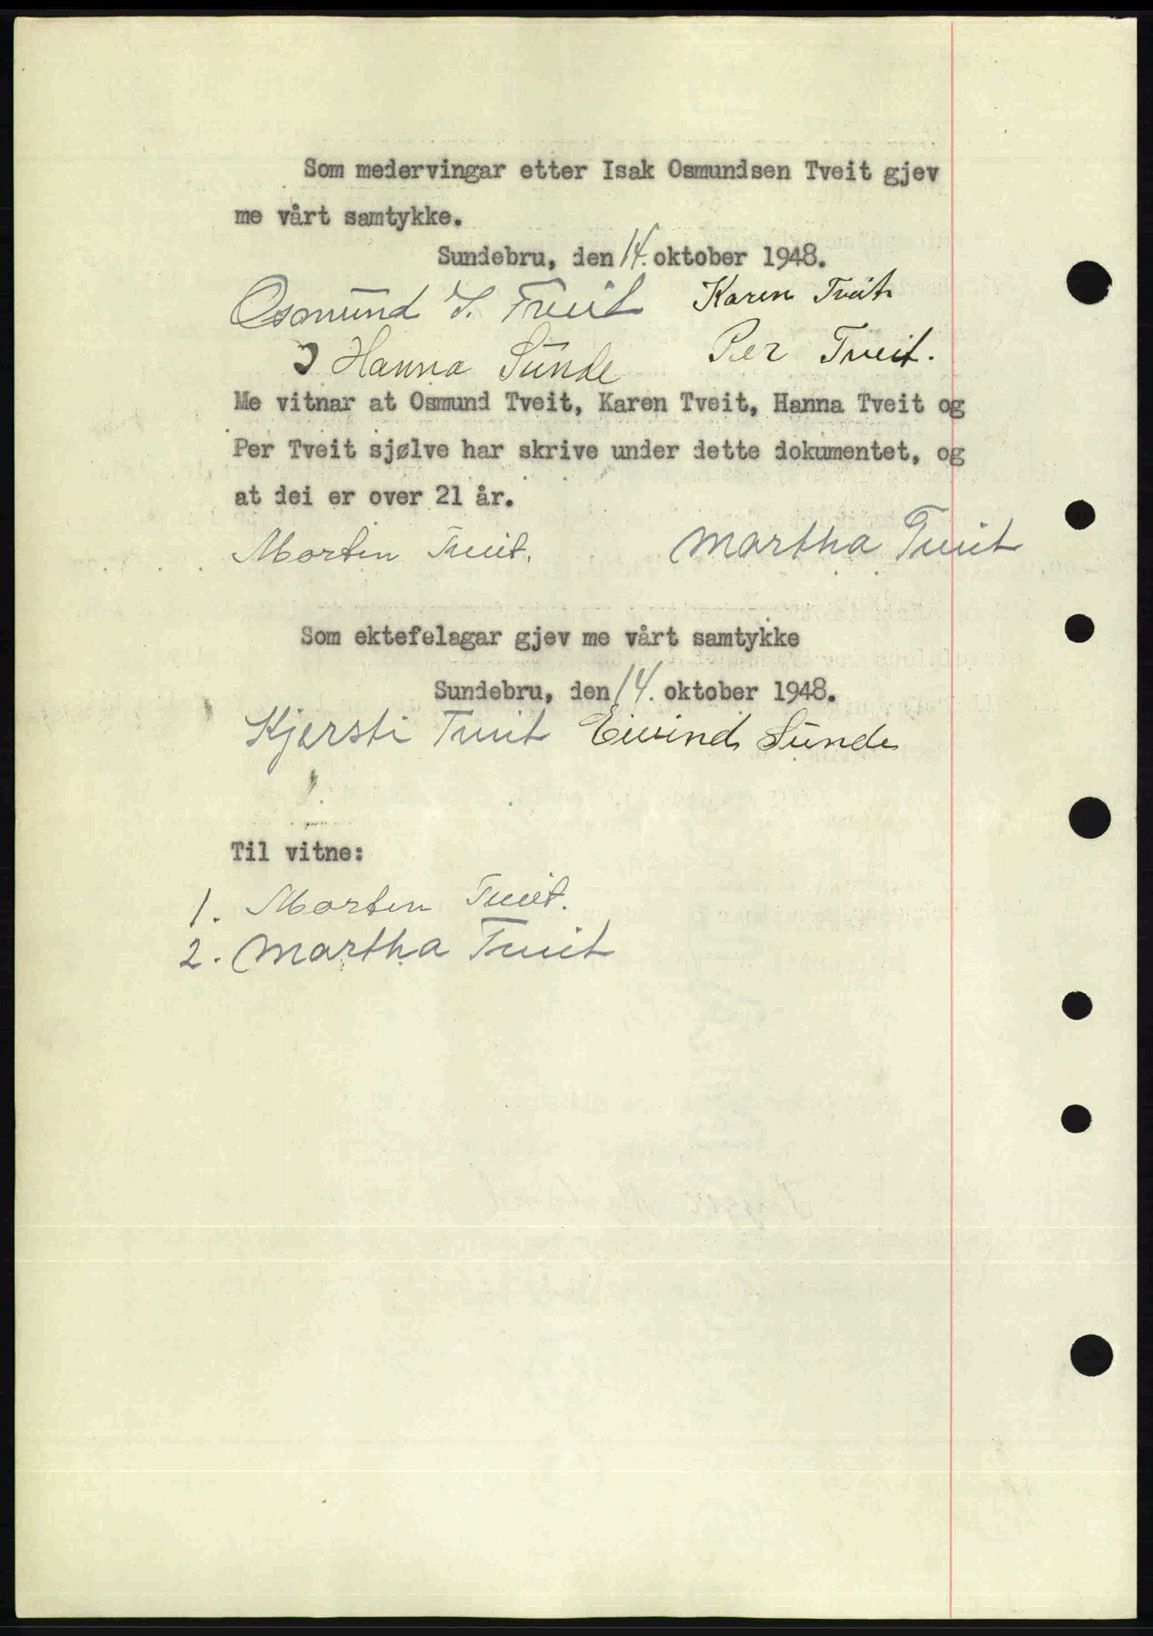 Som medervingar etter Isak Osmundsen Tveit gjev
me vårt samtykke.
Sundebru, den 14. oktober 1948.
Osmund I. Tveit Karen Tveit
Hanna Sunde Per Tveit.
Me vitnar at Osmund Tveit, Karen Tveit, Hanna Tveit og
Per Tveit sjølve har skrive under dette dokumentet, og
at dei er over 21 år.
Morten Tveit. Martha Tveit
Som ektefelagar gjev me vårt samtykke
Sundebru, den 14. oktober 1948.
Kjersti Tveit Eivind Sunde
Til vitne:
1. Morten Tveit.
2. Martha Tveit